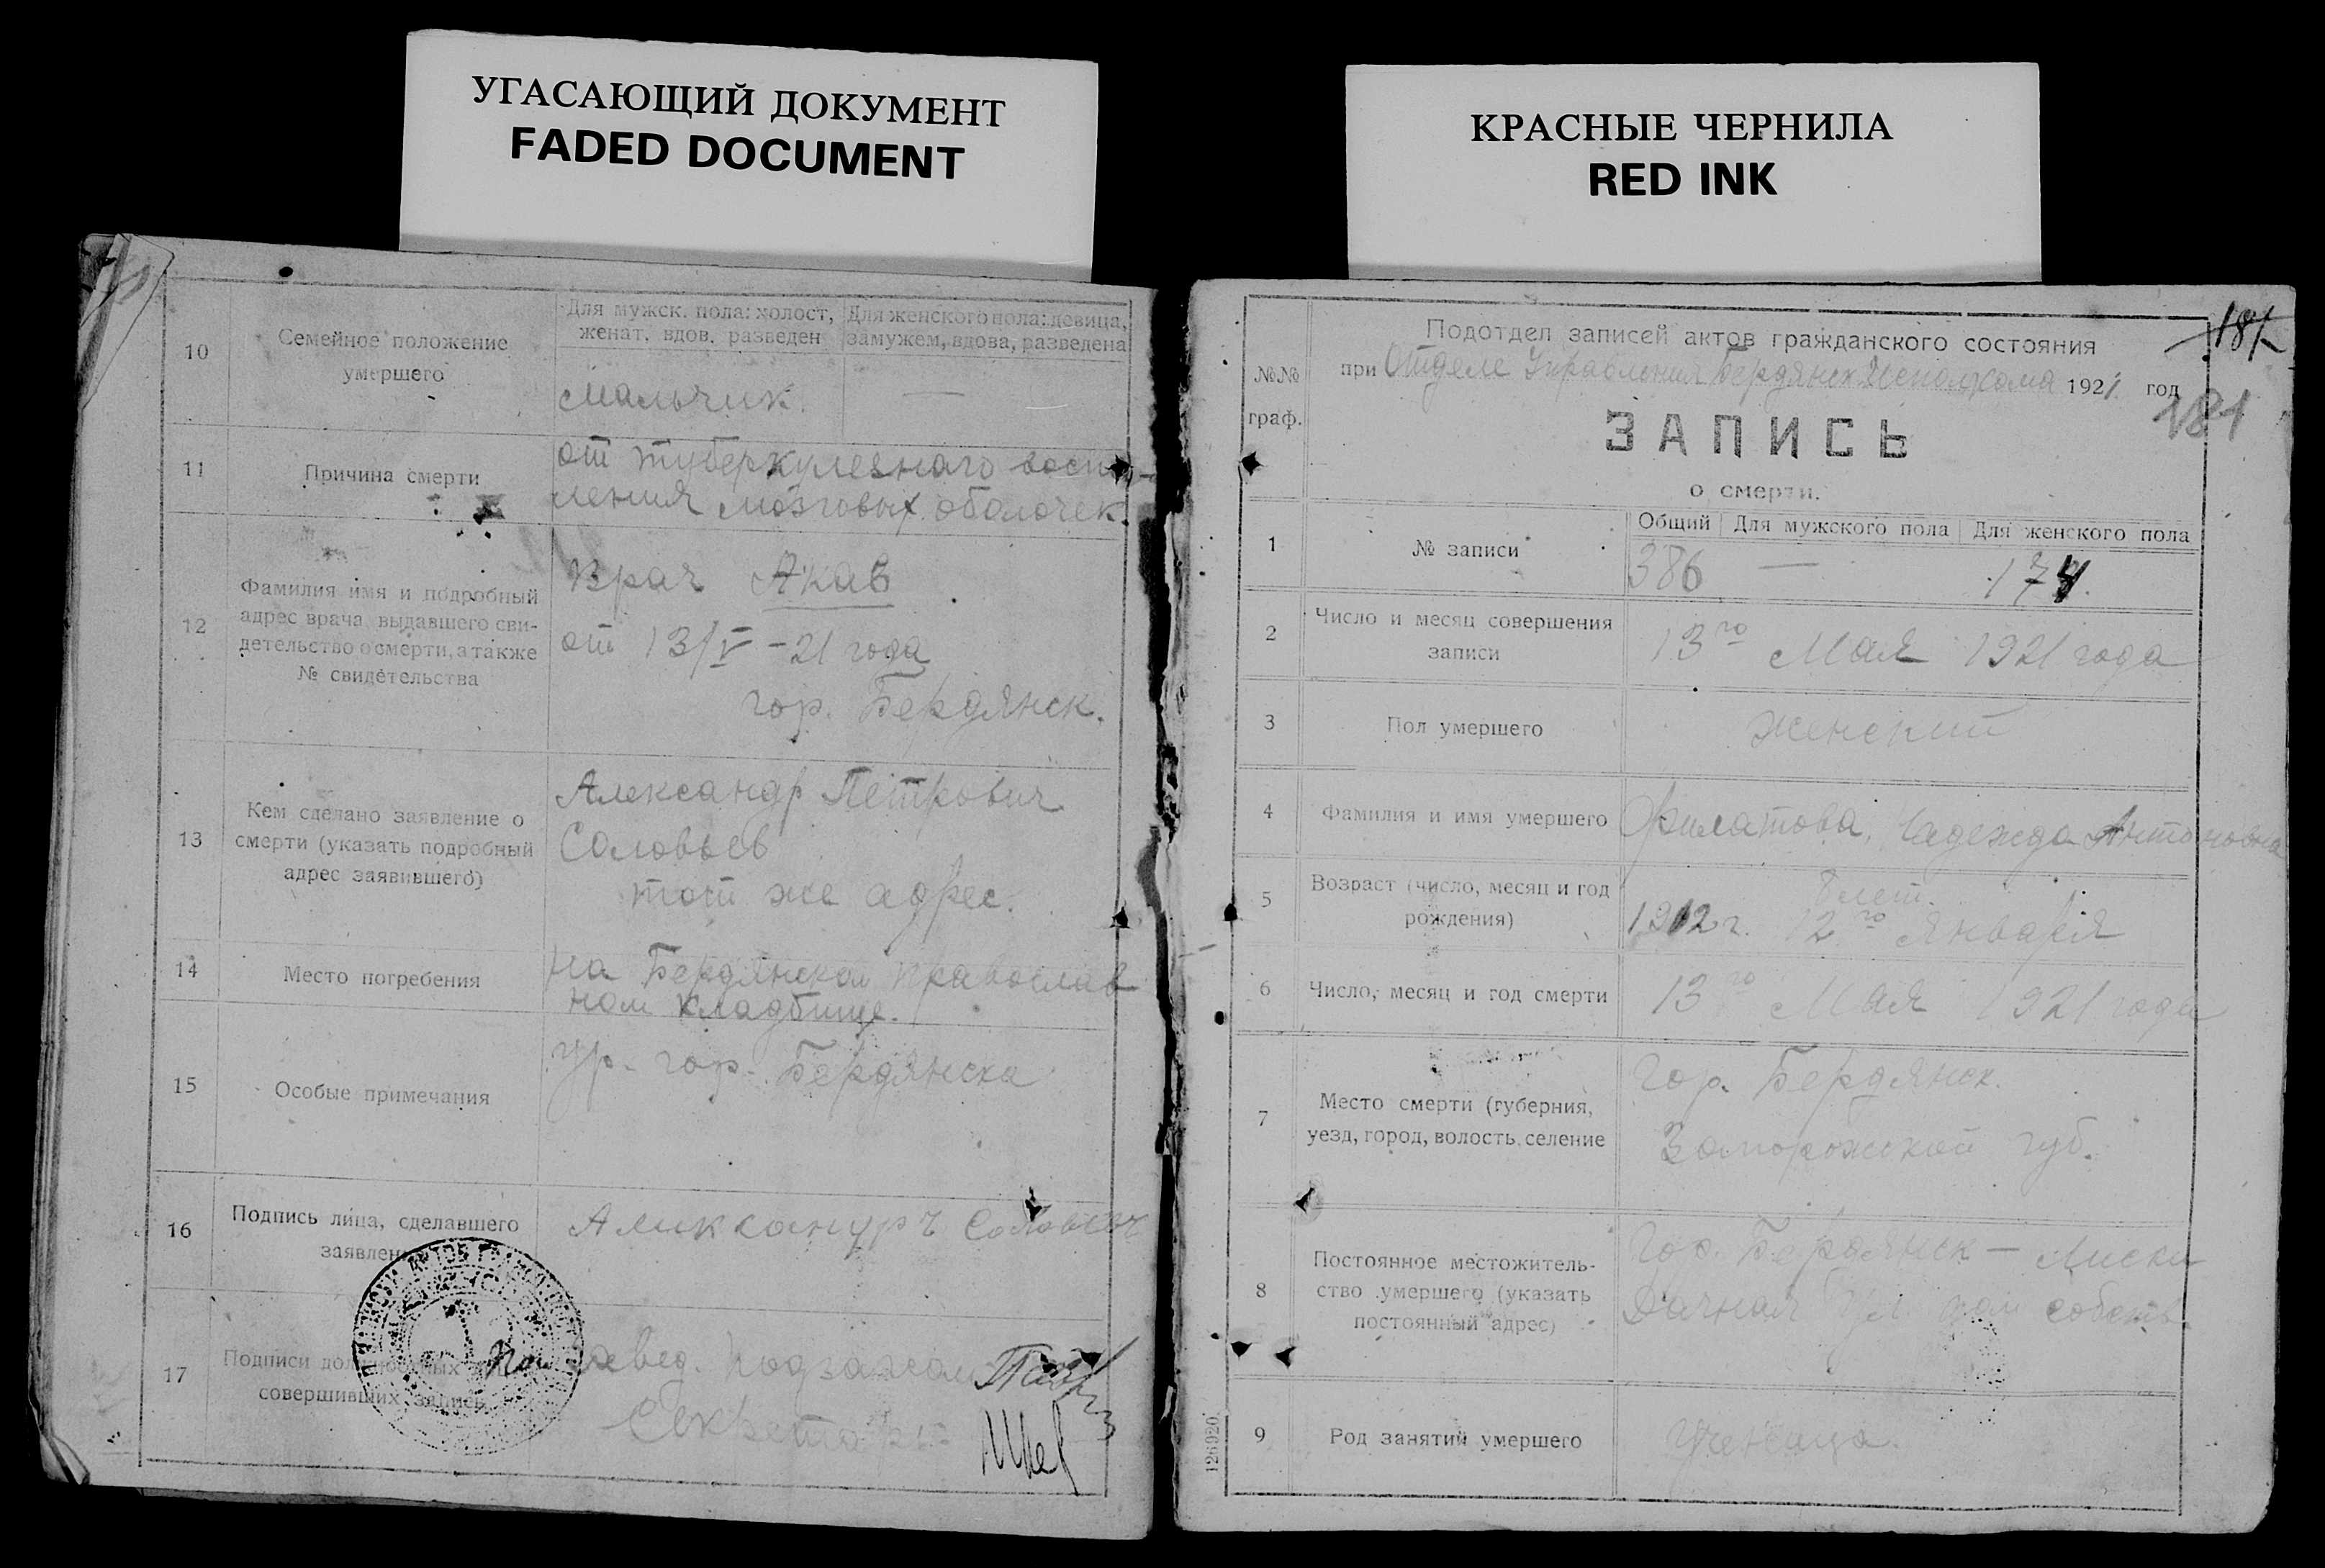 УГАСАЮЩИЙ ДОКУМЕНТ
FADED DOCUMENT
КРАСНЫЕ ЧЕРНИЛА
RED INK
10
Семейное положение
умершего
Для мужск. пола: холост,
женат, вдов, разведен
Для женского пола: девица,
замужем, вдова, разведена
Мальчик.
—
11
Причина смерти
от туберкулезнаго воспа-
ления мозговых оболочек.
12
Фамилия имя и подробный
адрес врача, выдавшего сви-
детельство о смерти, а также
№ свидетельства
Врач Акав
от 13/V – 21 года
гор. Бердянск.
13
Кем сделано заявление о
смерти (указать подробный
адрес заявившего)
Александр Петрович
Соловьев
тот же адрес.
14
Место погребения
на Бердянском православ
ном кладбище.
15
Особые примечания
ур. гор. Бердянска
16
Подпись лица, сделавшего
заявлен
17
Подписи должностных
совершивших запись
Завед. подзагсом
Секретарь
187
181
№№
граф.
Подотдел записей актов гражданского состояния
при Отделе Управления Бердянск. Исполкома 1921 год
ЗАПИСЬ
о смерти.
1
№ записи
Общий
Для мужского пола
Для женского пола
386
—
174.
2
Число и месяц совершения
записи
13го Мая 1921 года
3
Пол умершего
женский
4
Фамилия и имя умершего
Филатова, Надежда Антоновна
5
Возраст (число, месяц и год
рождения)
8 лет.
1912 г. 12го Января
6
Число, месяц и год смерти
13го Мая 1921 года
7
Место смерти (губерния,
уезд, город, волость, селение
Гор. Бердянск.
Запорожской губ.
8
Постоянное местожитель-
ство умершего (указать
постоянный адрес)
Гор. Бердянск — Лиски
Дачная ул дом собств.
9
Род занятий умершего
Ученица.
126920